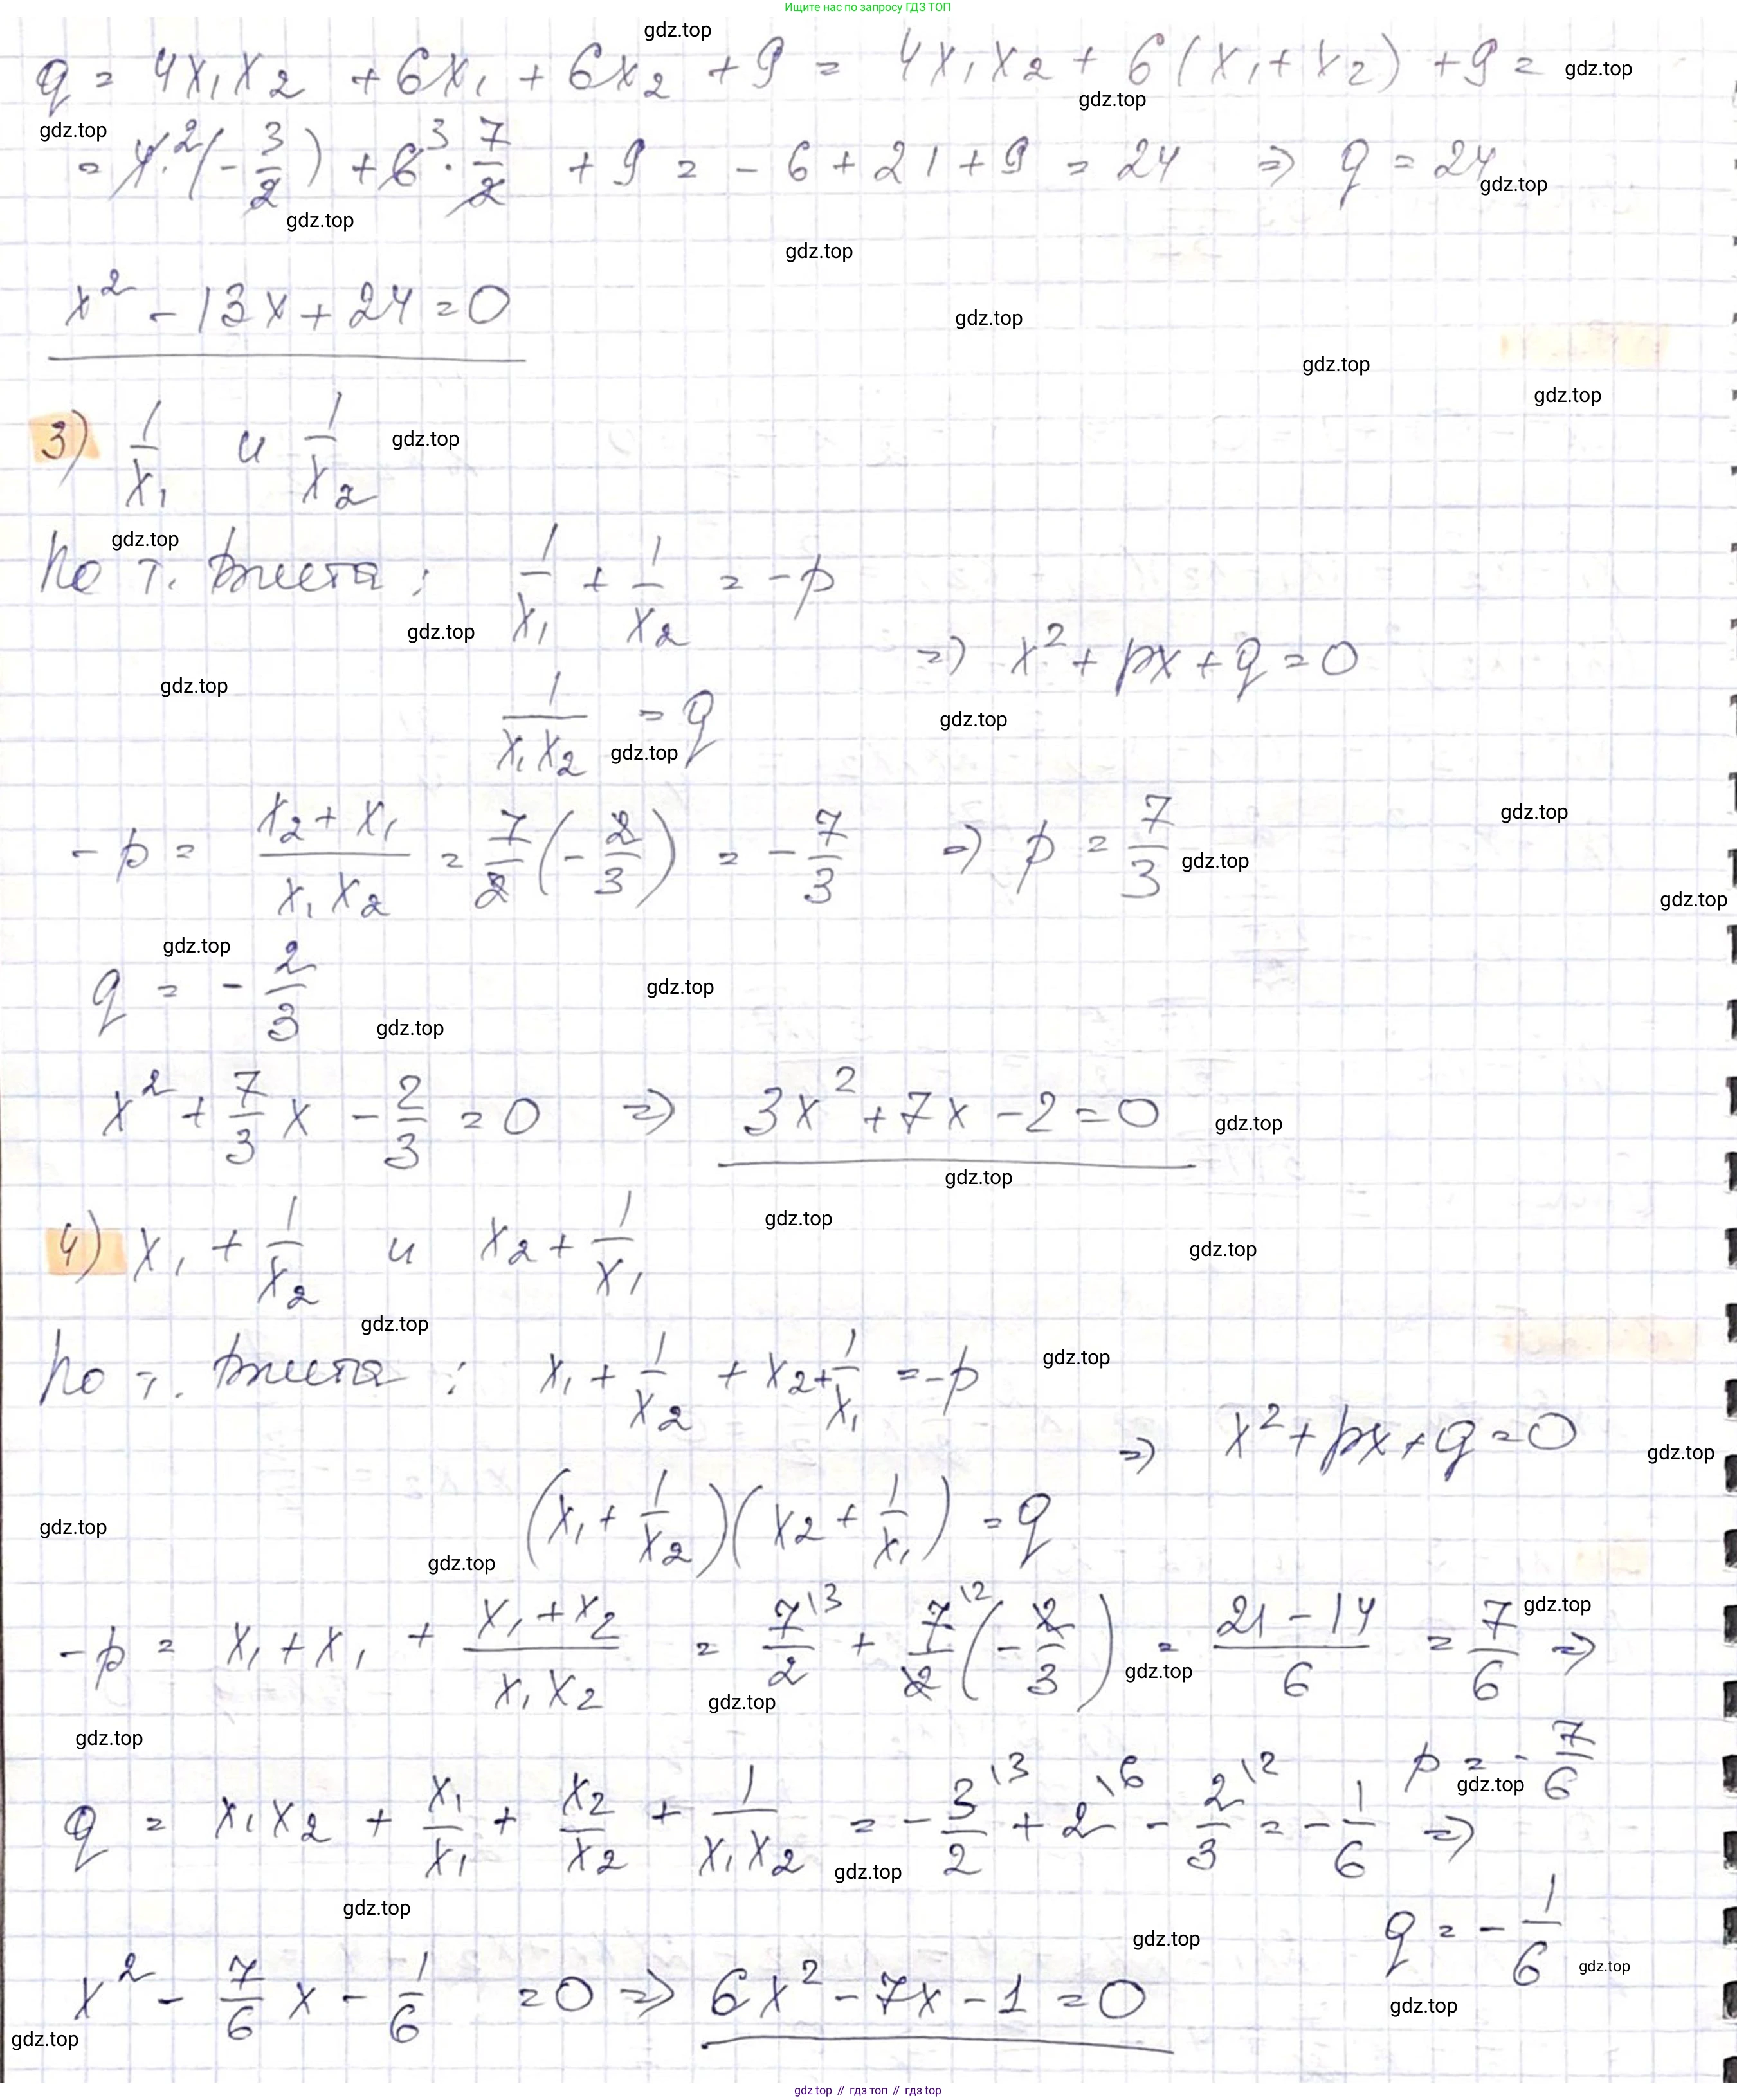 Ищите нас по запросу ГДЗ ТОП
gdz.top
q = 4x₁x₂ + 6x₁ + 6x₂ + 9 = 4x₁x₂ + 6(x₁+x₂) + 9 = gdz.top
gdz.top
gdz.top
= 4·²(-3/2) + 6³·7/2 + 9 = -6 + 21 + 9 = 24 ⇒ q = 24
gdz.top
gdz.top
gdz.top
x² - 13x + 24 = 0
gdz.top
gdz.top
gdz.top
3) 1/x₁ и 1/x₂ gdz.top
gdz.top
По т. Виета: 1/x₁ + 1/x₂ = -p
gdz.top
⇒ x² + px + q = 0
gdz.top
1/(x₁x₂) = q
gdz.top
gdz.top
-p = (x₂ + x₁)/(x₁x₂) = 7/2(-2/3) = -7/3 ⇒ p = 7/3 gdz.top
gdz.top
gdz.top
gdz.top
q = -2/3
gdz.top
gdz.top
x² + 7/3x - 2/3 = 0 ⇒ 3x² + 7x - 2 = 0 gdz.top
gdz.top
gdz.top
4) x₁ + 1/x₂ и x₂ + 1/x₁ gdz.top
gdz.top
По т. Виета: x₁ + 1/x₂ + x₂ + 1/x₁ = -p gdz.top
⇒ x² + px + q = 0 gdz.top
gdz.top
(x₁ + 1/x₂)(x₂ + 1/x₁) = q
gdz.top
-p = x₁ + x₁ + (x₁ + x₂)/(x₁x₂) = 7\3/2 + 7\2/2(-2/3) = (21 - 14)/6 = 7/6 ⇒ gdz.top
gdz.top
gdz.top
gdz.top
p = -7/6
gdz.top
q = x₁x₂ + x₁/x₁ + x₂/x₂ + 1/(x₁x₂) = -3\3/2 + 2\6 - 2\2/3 = -1/6 ⇒
gdz.top
gdz.top
q = -1/6 gdz.top
gdz.top
x² - 7/6x - 1/6 = 0 ⇒ 6x² - 7x - 1 = 0
gdz.top
gdz.top
gdz top // гдз топ // gdz top